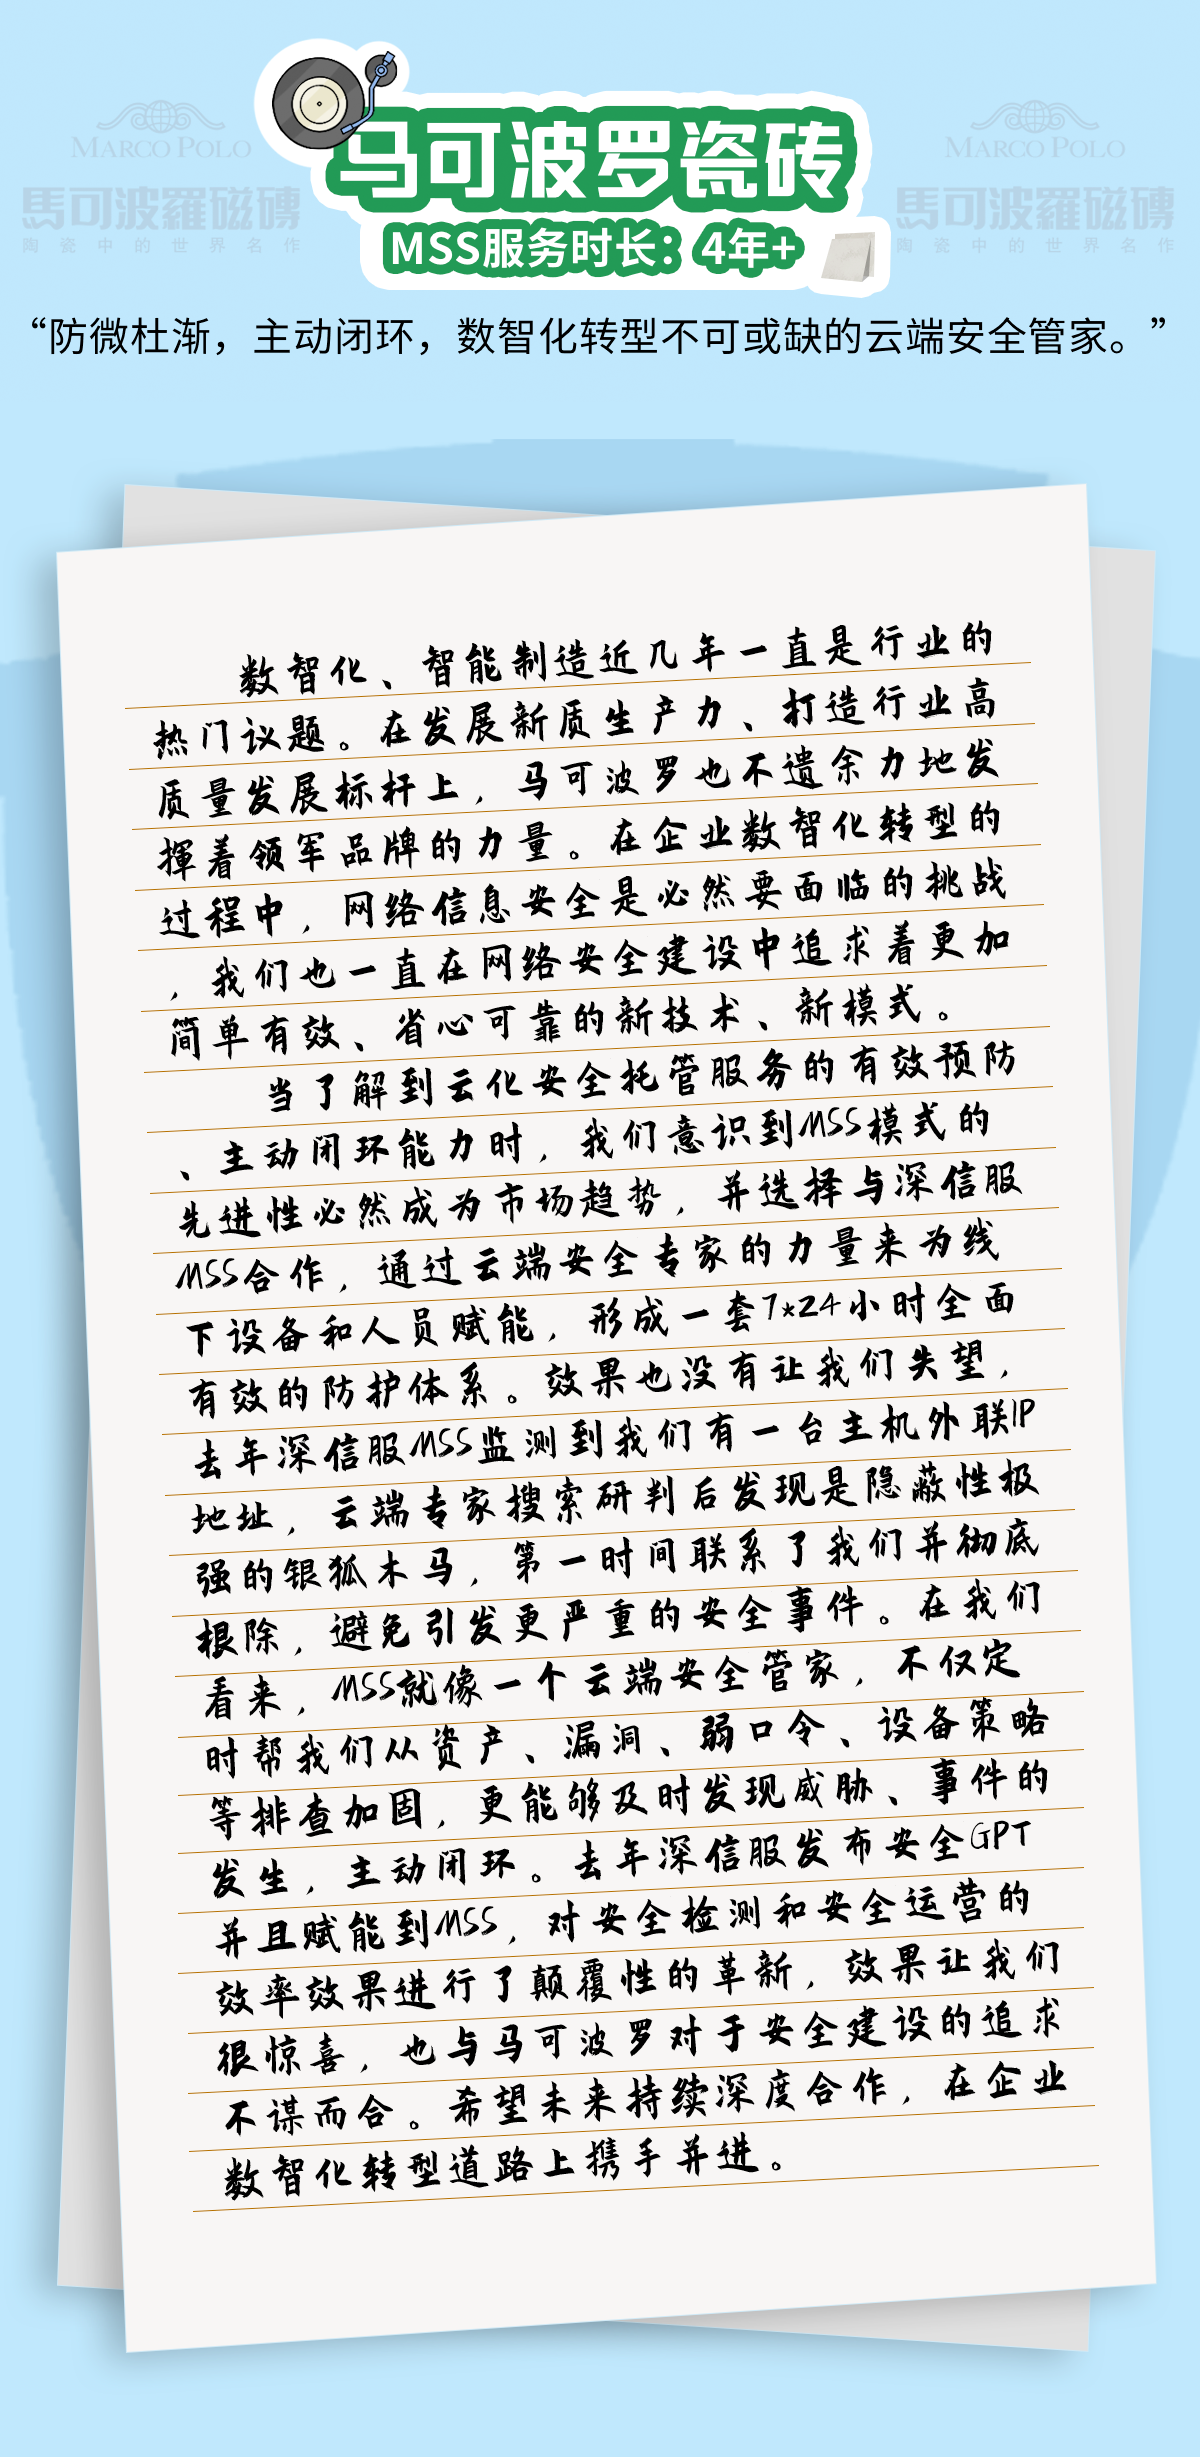 MARCO POLO
馬可波羅磁磚
陶瓷中的世界名作
MARCO POLO
馬可波羅磁磚
陶瓷中的世界名作
马可波罗瓷砖
MSS服务时长：4年+
“防微杜渐，主动闭环，数智化转型不可或缺的云端安全管家。”
数智化、智能制造近几年一直是行业的
热门议题。在发展新质生产力、打造行业高
质量发展标杆上，马可波罗也不遗余力地发
揮着领军品牌的力量。在企业数智化转型的
过程中，网络信息安全是必然要面临的挑战
，我们也一直在网络安全建设中追求着更加
简单有效、省心可靠的新技术、新模式。
当了解到云化安全托管服务的有效预防
、主动闭环能力时，我们意识到MSS模式的
先进性必然成为市场趋势，并选择与深信服
MSS合作，通过云端安全专家的力量来为线
下设备和人员赋能，形成一套7*24小时全面
有效的防护体系。效果也没有让我们失望，
去年深信服MSS监测到我们有一台主机外联IP
地址，云端专家搜索研判后发现是隐蔽性极
强的银狐木马，第一时间联系了我们并彻底
根除，避免引发更严重的安全事件。在我们
看来，MSS就像一个云端安全管家，不仅定
时帮我们从资产、漏洞、弱口令、设备策略
等排查加固，更能够及时发现威胁、事件的
发生，主动闭环。去年深信服发布安全GPT
并且赋能到MSS，对安全检测和安全运营的
效率效果进行了颠覆性的革新，效果让我们
很惊喜，也与马可波罗对于安全建设的追求
不谋而合。希望未来持续深度合作，在企业
数智化转型道路上携手并进。